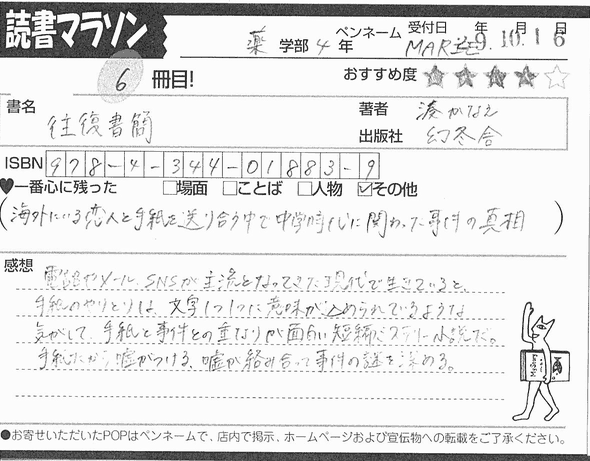 読書マラソン
薬 学部 4 年 ペンネーム MARIE 受付日 年 月 日 9.10.16
6 冊目! おすすめ度 ★★★★☆
書名 往復書簡 著者 湊かなえ
出版社 幻冬舎
ISBN 978-4-344-01883-9
♥一番心に残った □場面 □ことば □人物 ☑その他
(海外にいる恋人と手紙を送り合う中で中学時代に関わった事件の真相)
感想 電話やメール、SNSが主流となってきた現代で生きていると、
手紙のやりとりは、文字1つ1つに意味が込められているような
気がして、手紙と事件との重なりが面白い短編ミステリー小説だ。
手紙だから嘘がつける、嘘が絡み合って事件の謎を深める。
●お寄せいただいたPOPはペンネームで、店内で掲示、ホームページおよび宣伝物への転載をご了承ください。